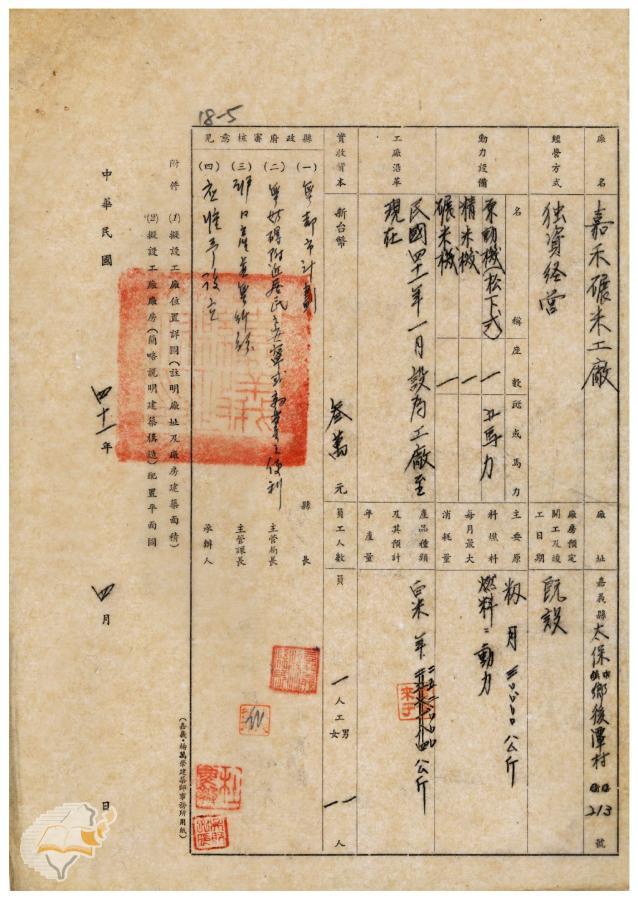 18-5
廠名 嘉禾碾米工廠
廠址 嘉義縣太保鄉後潭村 213 號
經營方式 独資経営
廠房預定開工及竣工日期 既設
動力設備 名稱 座數 匹或馬力
電動機(松下式) 一 五馬力
精米機 一
碾米機 一
主要原料燃料每月最大消耗量
籾 月 公斤
燃料:動力
工廠沿革 民國四十一年一月設為工廠至
現在
產品種類及其預計年產量
米 年 公斤
實收資本 新台幣 叁萬 元
員工人數 員 一 人 工 男 一 女 一 人
縣政府審核意見
(一) 無都市計劃
(二) 無妨礙附近居民
(三)
(四) 應准予設立
縣長
主管局長
主管課長
承辦人
附件 (1)擬設工廠位置詳圖(註明廠址及廠房建築面積)
(2)擬設工廠廠房(簡略說明建築構造)配置平面圖
中華民國 四十一 年 四 月 日
(嘉義・楊萬榮建築師事務所用紙)